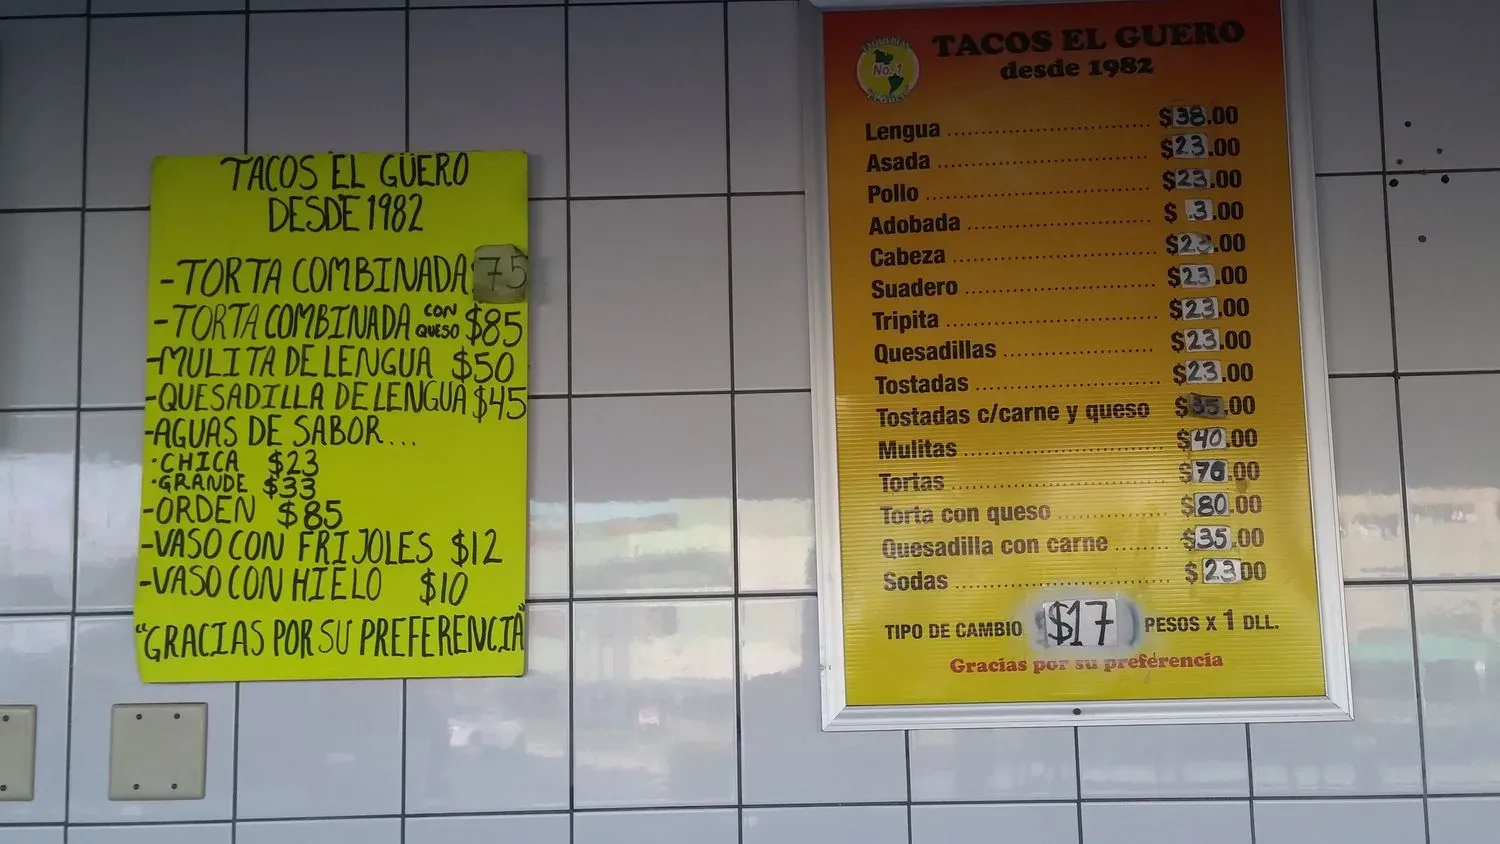 TACOS EL GÜERO
DESDE 1982
-TORTA COMBINADA 75
-TORTA COMBINADA CON QUESO $85
-MULITA DE LENGUA $50
-QUESADILLA DE LENGUA $45
-AGUAS DE SABOR...
·CHICA $23
·GRANDE $33
-ORDEN $85
-VASO CON FRIJOLES $12
-VASO CON HIELO $10
"GRACIAS POR SU PREFERENCIA"
TAQUERIAS
No. 1
EL GÜERO
TACOS EL GUERO
desde 1982
Lengua ............................ $38.00
Asada ............................ $23.00
Pollo ............................ $23.00
Adobada ............................ $ .3.00
Cabeza ............................ $23.00
Suadero ............................ $23.00
Tripita ............................ $23.00
Quesadillas ............................ $23.00
Tostadas ............................ $23.00
Tostadas c/carne y queso $35.00
Mulitas ............................ $40.00
Tortas ............................ $70.00
Torta con queso ................ $80.00
Quesadilla con carne ........ $35.00
Sodas ............................ $2300
TIPO DE CAMBIO $17 PESOS X 1 DLL.
Gracias por su preferencia